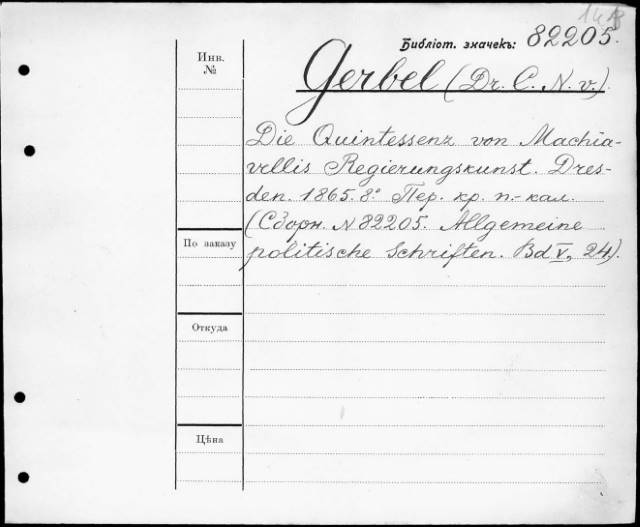 Библіот. значекъ: 82205.
Инв.
№
Gerbel (Dr. C. N. v.)
Die Quintessenz von Machia-
vellis Regierungskunst. Dres-
den. 1865. 8° Пер. кр. п.-кал.
(Сборн. №82205. Allgemeine
politische Schriften. Bd V, 24).
По заказу
Откуда
Цѣна